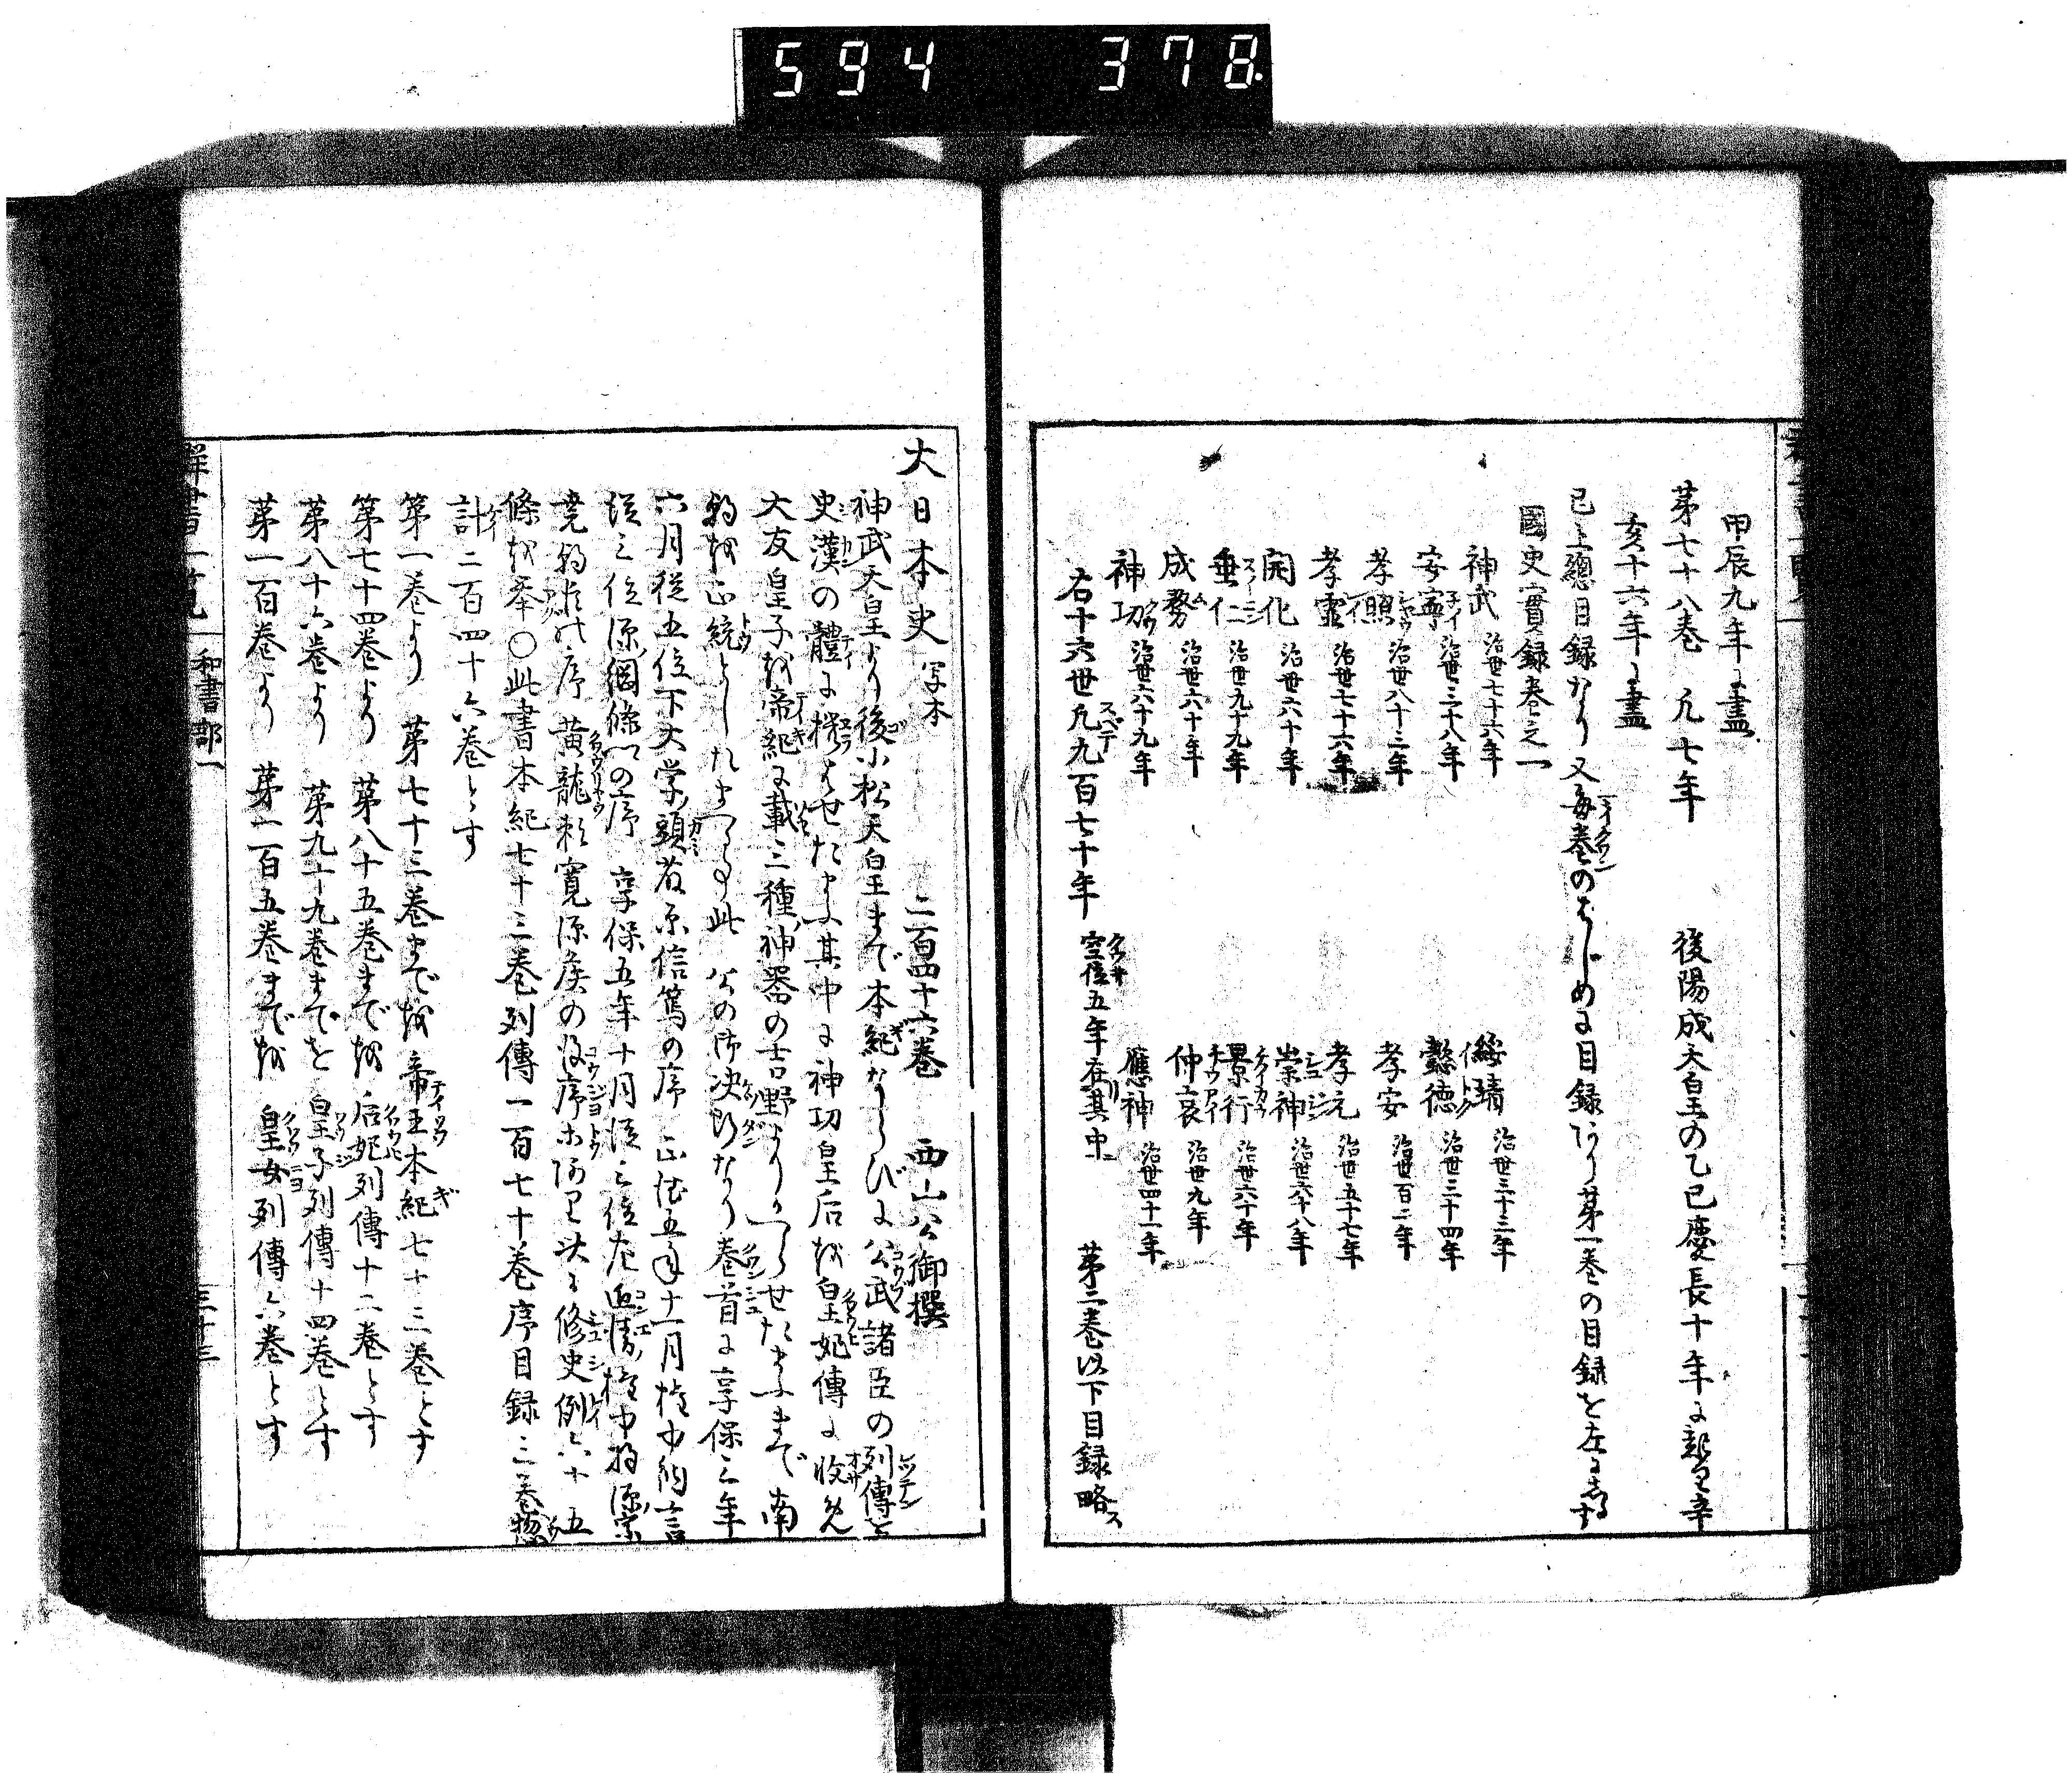 594 378
甲辰九年に盡
第七十八巻 凡七年 後陽成天皇の乙巳慶長十年に起り辛
亥十六年に盡
已上總目録なり又毎巻のはじめに目録あり第一巻の目録を左にしるす
國史實録巻之一
神武 治世七十六年 綏靖 治世三十三年
安寧 治世三十八年 懿徳 治世三十四年
孝照 治世八十三年 孝安 治世百二年
孝靈 治世七十六年 孝元 治世五十七年
開化 治世六十年 崇神 治世六十八年
垂仁 治世九十九年 景行 治世六十年
成務 治世六十年 仲哀 治世九年
神功 治世六十九年 應神 治世四十一年
右十六世凡九百七十年 空位五年在其中 第二巻以下目録略ス
大日本史 写本 二百四十六巻 西山公御撰
神武天皇より後小松天皇まで本紀ならびに公武諸臣の列傳を
史漢の體に擬させたまふ其中に神功皇后を皇妃傳に收め
大友皇子を帝紀に載三種神器の吉野よりかへらせたまふまで南
朝を正統としたまへる事此 公の御決断なり巻首に享保三年
六月従五位下大学頭藤原信篤の序 正徳五年十一月権中納言
従三位源綱條の序 享保五年十月従三位左近衛権中将源宗
堯朝臣の序 黄龍頼寛源侯の後序等あり次に修史例六十五
條を奉〇此書本紀七十三巻列傳一百七十巻序目録三巻惣
計二百四十六巻とす
第一巻より 第七十三巻まで 帝王本紀七十三巻とす
第七十四巻より 第八十五巻までを 后妃列傳十二巻とす
第八十六巻より 第九十九巻までを 皇子列傳十四巻とす
第一百巻より 第一百五巻までを 皇女列傳六巻とす
群書一覧 和書部一 三十三